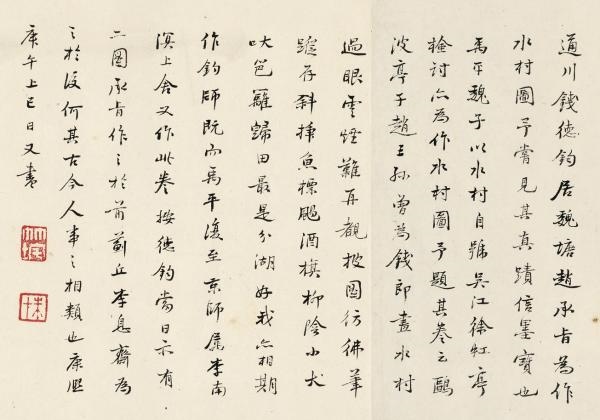 通川錢德鈞居魏塘趙承旨為作
水村圖予嘗見其真蹟信墨寶也
禹平魏子以水村自號吳江徐虹亭
檢討亦為作水村圖予題其卷云鷗
波亭子趙王孫曾為錢郎畫水村
過眼雲煙難再覩披圖彷彿筆
蹤存斜揷魚標颺酒旗柳陰小犬
吠笆籬歸田最是分湖好我亦相期
作釣師既而禹平復至京師屬李南
溟上舍又作此卷按德鈞當日亦有
二圖承旨作之於前薊丘李息齋為
之於後何其古今人事之相類也康熙
庚午上巳日又書
竹垞
朱十